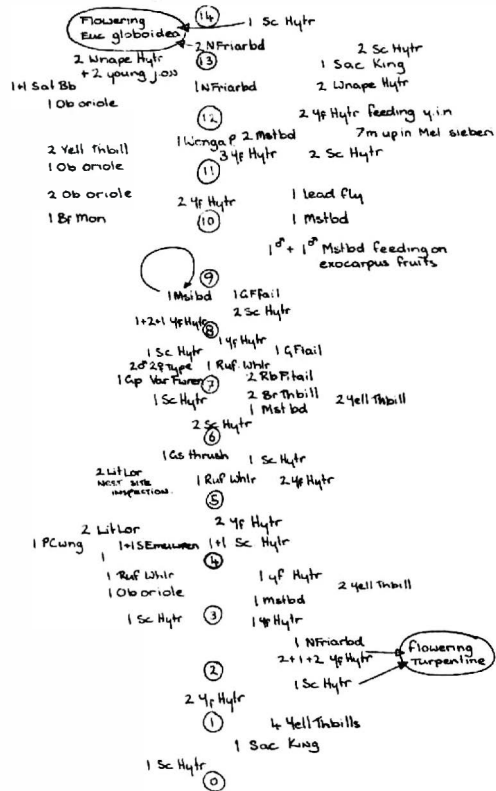 Flowering
Euc globoidea
14
1 Sc Hytr
2 NFriarbd
13
2 Wnape Hytr
+ 2 young joss
2 Sc Hytr
1 Sac King
1+1 Sat Bb
1 NFriarbd
2 Wnape Hytr
1 Ob oriole
12
2 yf Hytr feeding y.in
7m up in Mel sieben
1 Wonga P 2 Mstbd
2 Yell Thbill
3 yf Hytr
2 Sc Hytr
1 Ob oriole
11
2 Ob oriole
1 Lead fly
2 yf Hytr
1 Br Mon
10
1 Mstbd
1♂ + 1♂ Mstbd feeding on
exocarpus fruits
9
1 Msibd
1 GFfail
2 Sc Hytr
1+2+1 yf Hytr
8
1 yf Hytr
1 Sc Hytr
1 GFtail
2♂ 2♀ Type
1 Ruf Whlr
1 Gp Var
7
2 RbFtail
2 Br Thbill
1 Sc Hytr
1 Mstbd
2 Yell Thbill
2 Sc Hytr
6
1 Gs thrush
1 Sc Hytr
2 Lit Lor
NEST SITE
INSPECTION.
1 Ruf Whlr
2 yf Hytr
5
2 Lit Lor
2 yf Hytr
1 PCwng
1+1 SEmuwren
1+1 Sc Hytr
1
4
1 Ruf Whlr
1 yf Hytr
2 Yell Thbill
1 Ob oriole
1 Mstbd
1 Sc Hytr
3
1 yf Hytr
1 NFriarbd
2+1+2 yf Hytr
flowering
Turpentine
2
1 Sc Hytr
2 yf Hytr
1
4 Yell Thbills
1 Sac King
1 Sc Hytr
0